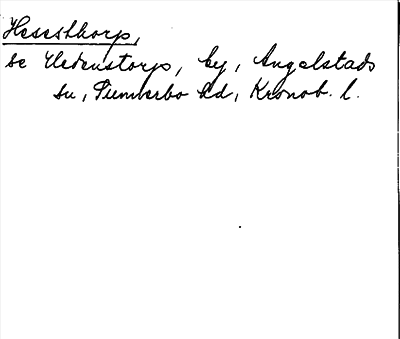 Hesesthorp,
se Hedenstorp, by, Angelstads
sn, Sunnerbo hd, Kronob. l.